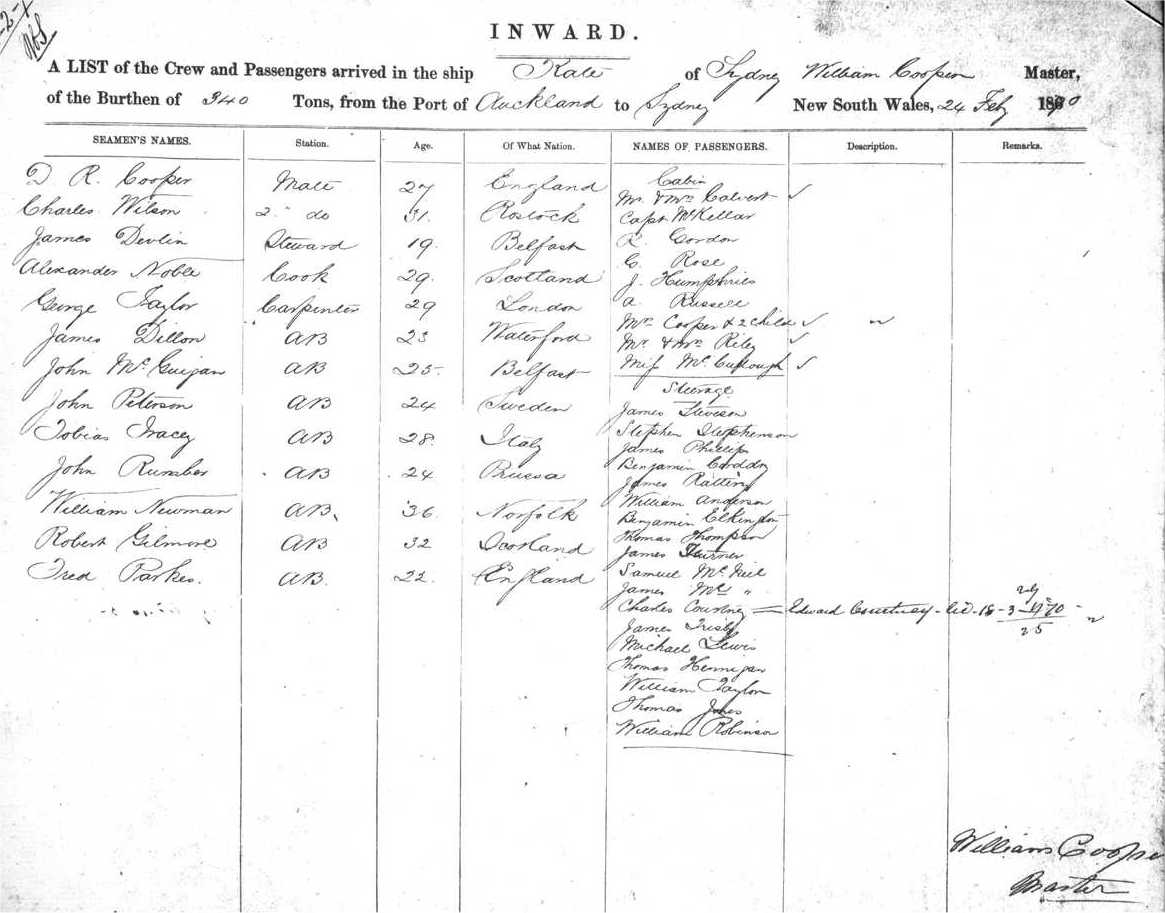 INWARD.
A LIST of the Crew and Passengers arrived in the ship Kate of Sydney William Cooper Master,
of the Burthen of 340 Tons, from the Port of Auckland to Sydney New South Wales, 24 Feby 1870
SEAMEN'S NAMES. Station. Age. Of What Nation. NAMES OF PASSENGERS. Description. Remarks.
D R. Cooper Mate 27 England
Charles Wilson 2" do 31. Rostock
James Devlin Steward 19. Belfast
Alexander Noble Cook 29. Scotland
George Taylor Carpenter 29 London
James Dillon AB 23 Waterford
John McGuigan AB 25. Belfast
John Peterson AB 24 Sweden
Tobias Tracey AB 28. Italy
John Rumber AB 24 Prussia
William Newman AB. 36. Norfolk
Robert Gilmore AB 32 Scotland
Fred Parkes. AB. 22. England
Cabin
Mr & Mrs Calvert ✓
Capt McKellar
R. Gordon
C. Rose
J. Humphries
A Russell
Mrs Cooper & 2 child ✓ "
Mr & Mrs Riley ✓
Miss McCullough ✓
Steerage
James Steveson
Stephen Stephenson
James Phillips
Benjamin Corddy
James Ratting
William Anderson
Benjamin Elkington
Thomas Thompson
James Turner
Samuel McNeil
James Mc "
Charles Courtney = Edward Courtney
James
Michael Lewis
Thomas Hennigan
William Taylor
Thomas Jones
William Robinson
William Cooper
Master